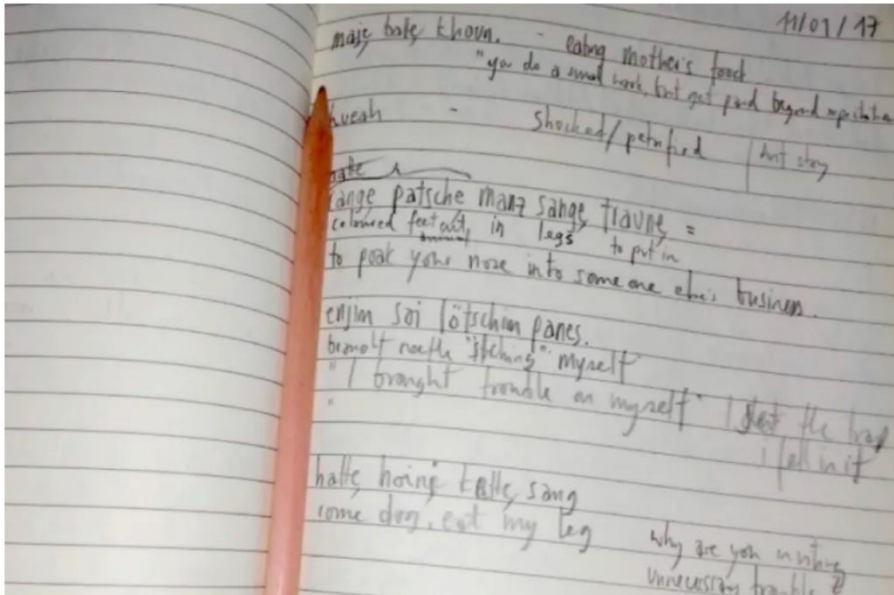 11/01/17
maję batę khovn. - eating mother's food
"you do a small work, but get paid beyond expectation
hueah - shocked/petrified
rangę patsche manz sangę travnę =
coloured in legs to put in
to poak your nose into someone else's business.
enjim soi lötschim panes.
needle "stching" myself
"I brought trouble on myself" I the trap
I fell in it
hattę hoinį sang
come dog, eat my leg
why are you inviting
unnecessary trouble?